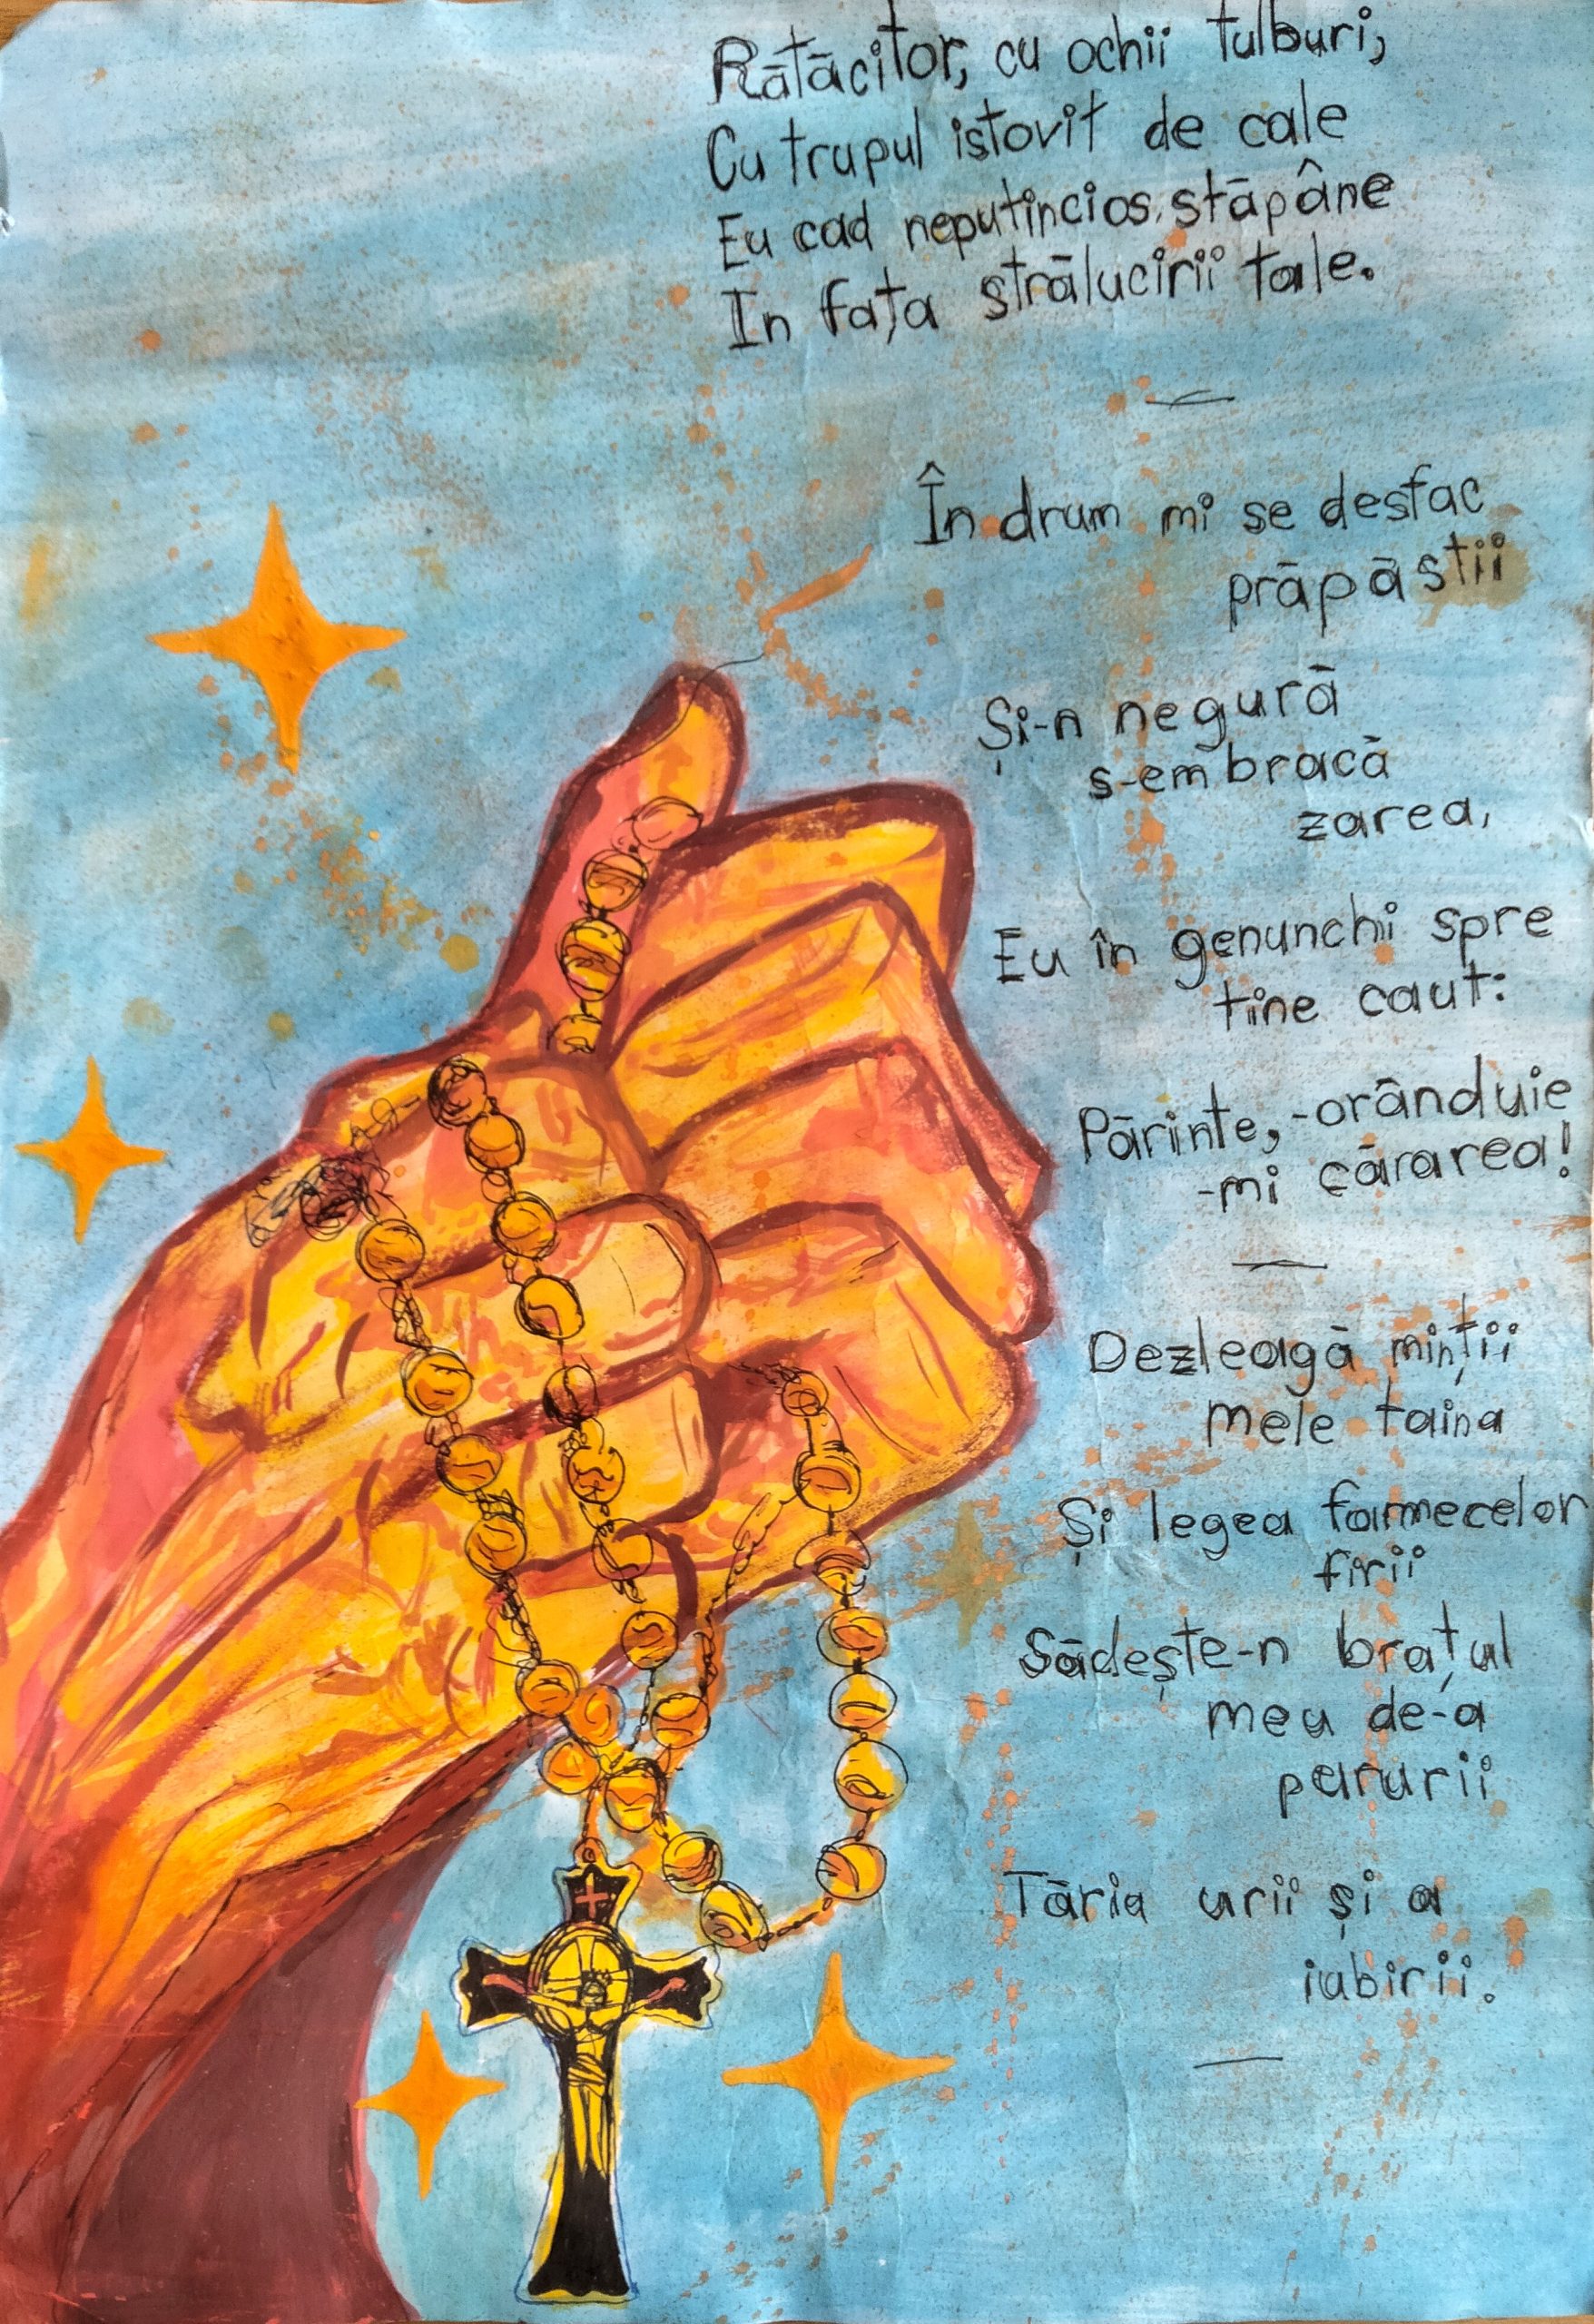 Rătăcitor, cu ochii tulburi,
Cu trupul istovit de cale
Eu cad neputincios, stăpâne
In fața strălucirii tale.
În drum mi se desfac
prăpăstii
Și-n negură
s-embracă
zarea,
Eu în genunchi spre
tine caut:
Părinte,-orânduie
-mi cărarea!
Dezleagă minții
mele taina
Și legea farmecelor
firii
Sădește-n brațul
meu de-a
pururii
Tăria urii și a
iubirii.